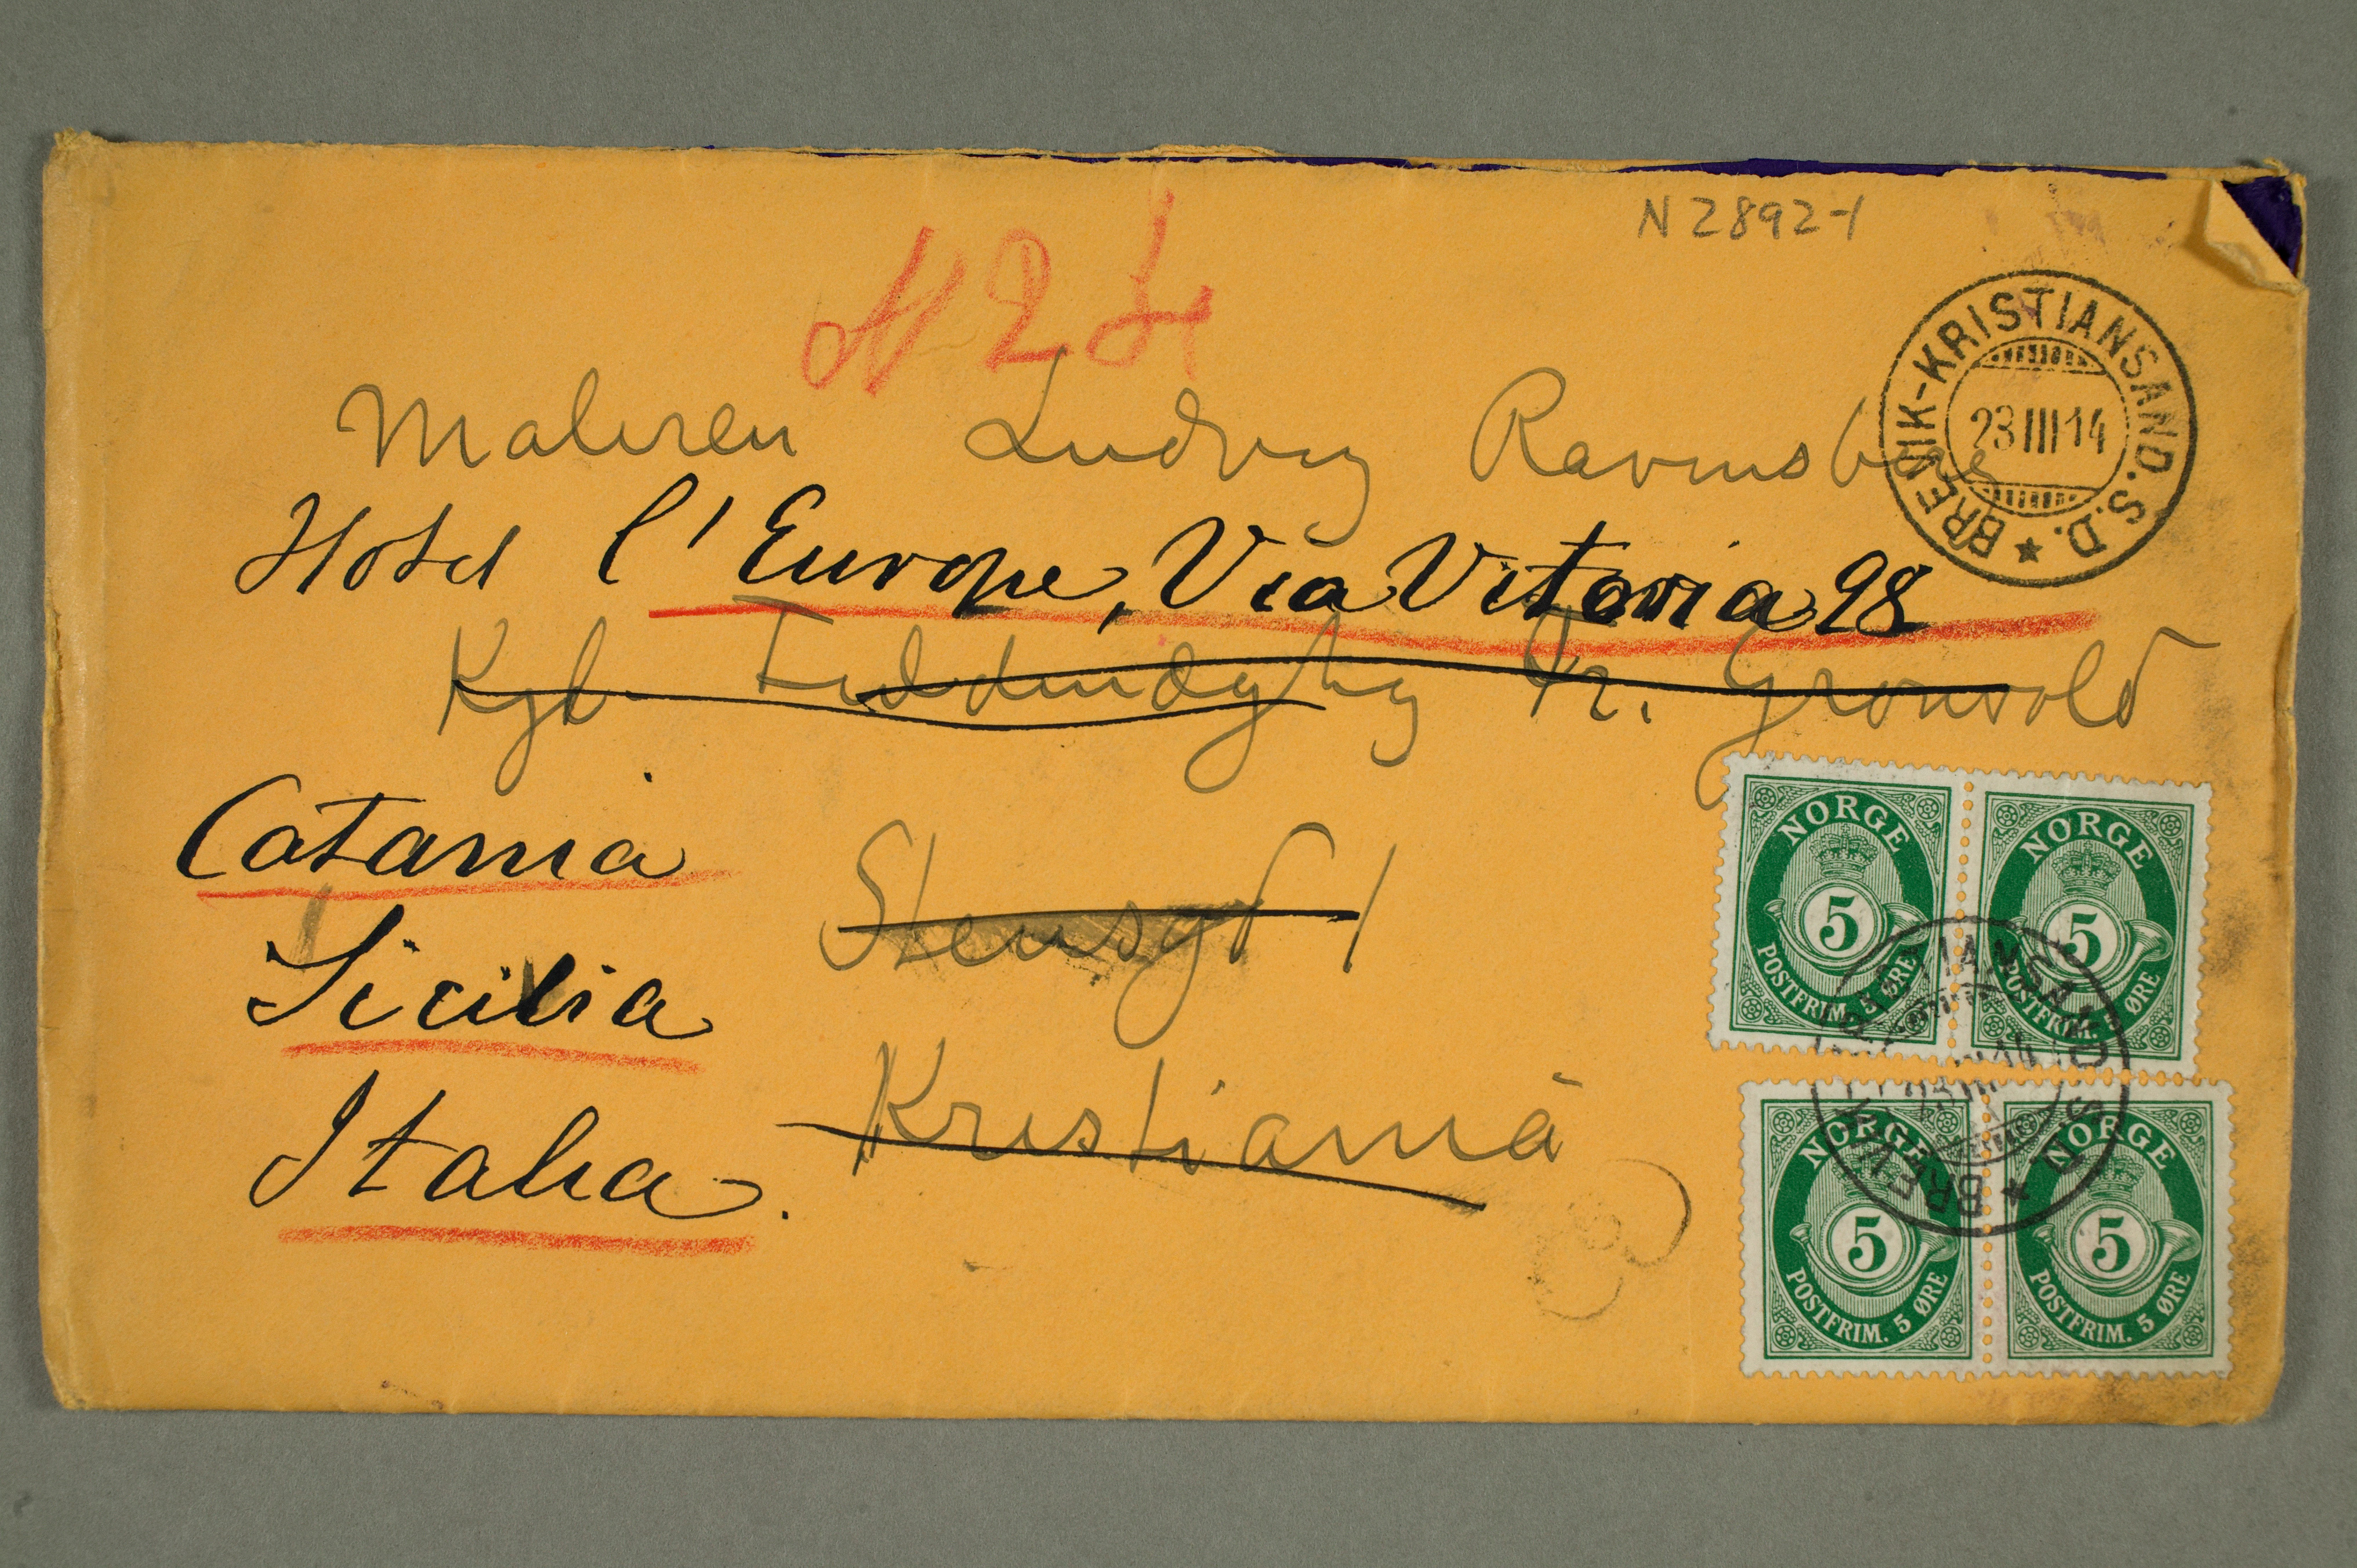 N 2892-1
N 24
BREVIK-KRISTIANSAND.S.D.
23 III 14
Maleren Ludvig Ravensberg
Hotel l'Europe, Via Vitoria 98
Kgl Fr. Grønvold
Catania
Stensgt 1
Sicilia
Kristiania
Italia.
NORGE
5
POSTFRIM. 5 ØRE
NORGE
5
POSTFRIM. 5 ØRE
KRISTIANSAND S.D. BREVIK
23 III 14
NORGE
5
POSTFRIM. 5 ØRE
NORGE
5
POSTFRIM. 5 ØRE